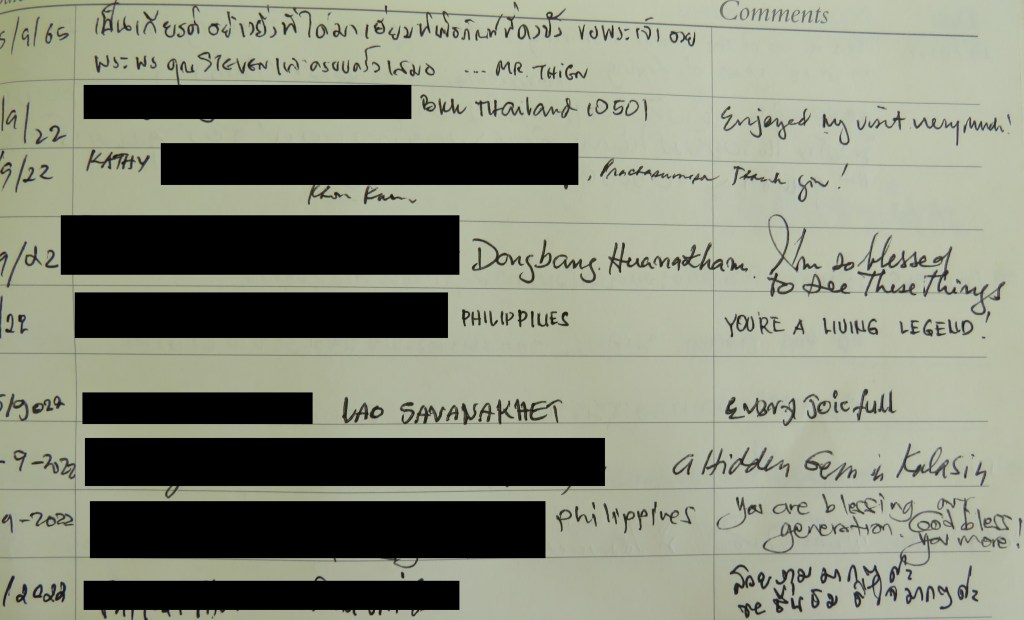 Comments
5/9/65 เป็นเกียรติ อย่างยิ่งที่ได้มาเยี่ยมพิพิธภัณฑ์ ขอพระเจ้าอวย
พระพร คุณ STEVEN และครอบครัวเสมอ ... MR. THIEN
/9/22 BKK Thailand 10501 Enjoyed my visit very much!
9/22 KATHY , Thank you!
Khon Kaen
9/22 Dongbang. I'm so blessed
to see These things
/22 PHILIPPINES YOU'RE A LIVING LEGEND!
LAO SAVANAKHET
-9-2022 a Hidden Gem in Kalasin
9-2022 philippines You are blessing our
generation. God bless
you more!
/2022